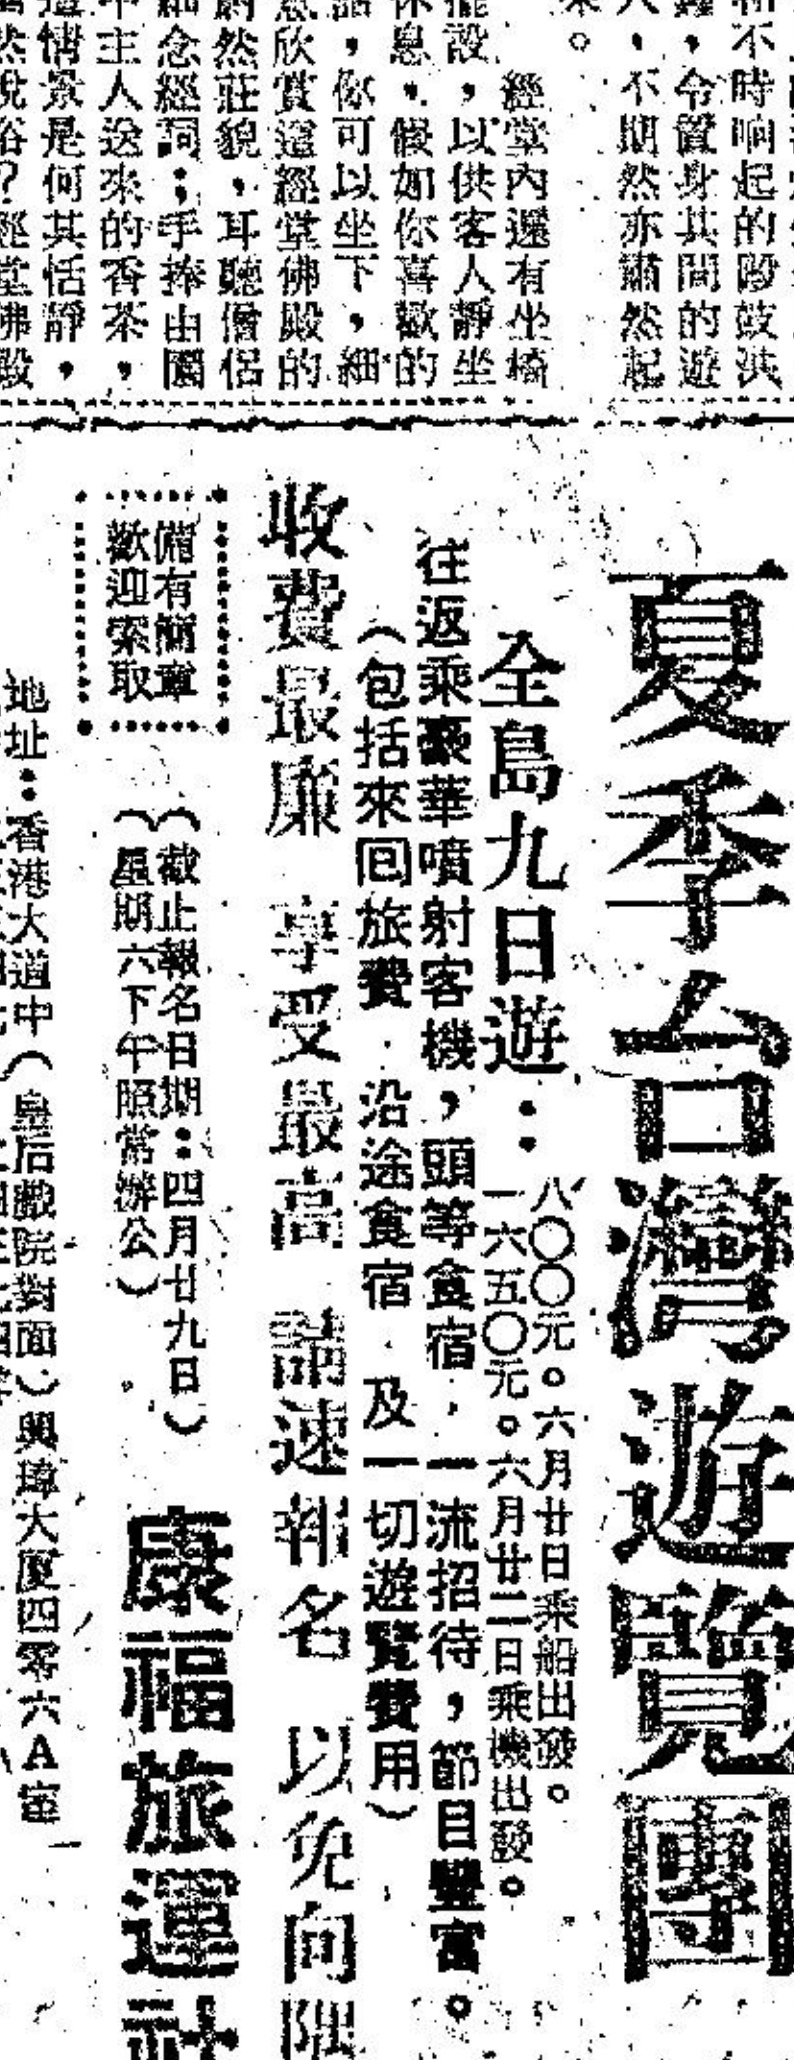 不時响起的殿鼓洪
，令置身其間的遊
人，不期然亦肅然起
。
經堂內還有坐椅
設，以供客人靜坐
休息。假如你喜歡的
話，你可以坐下，細
欣賞這經堂佛殿的
然莊貌，耳聽僧侶
細念經詞；手捧由園
中主人送來的香茶，
情景是何其恬靜，
然脫俗？經堂佛殿
夏季台灣遊覽團
全島九日遊：
八〇〇元。六月廿日乘船出發。
一六五〇元。六月廿二日乘機出發。
往返乘豪華噴射客機，頭等食宿．一流招待，節目豐富。
（包括來回旅費．沿途食宿．及一切遊覽費用）
收費最廉 享受最高 請速報名 以免向隅
備有簡章
歡迎索取
（截止報名日期：四月廿九日）
（星期六下午照常辦公）
康福旅運社
地址：香港大道中（皇后戲院對面）興瑋大廈四零六A室